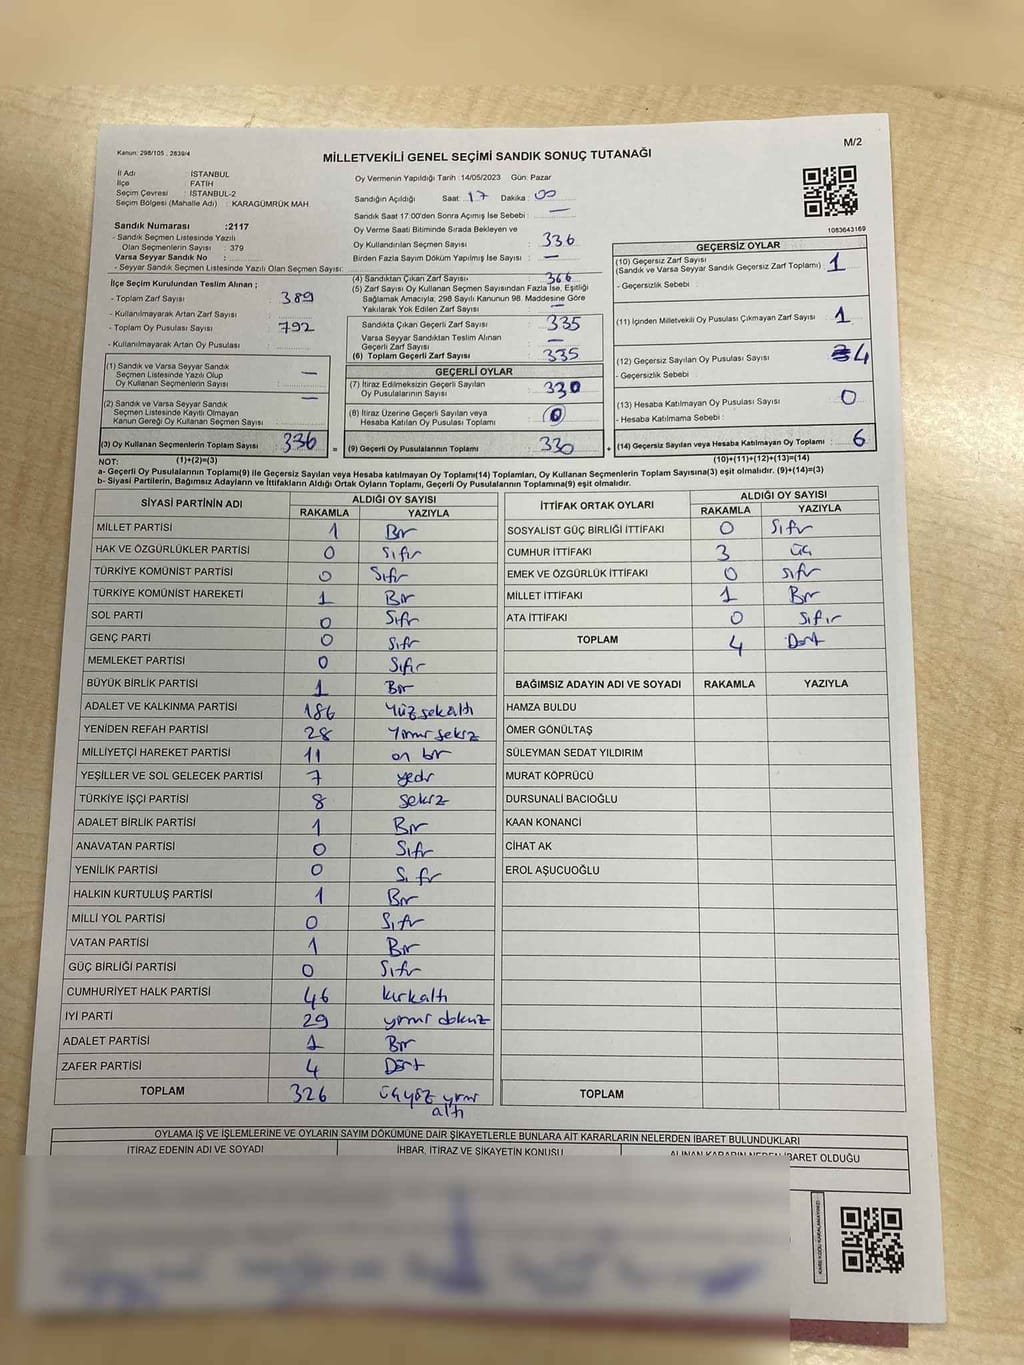 M/2
Kanun: 298/105 , 2839/4
MİLLETVEKİLİ GENEL SEÇİMİ SANDIK SONUÇ TUTANAĞI
İl Adı : İSTANBUL
İlçe : FATİH
Seçim Çevresi : İSTANBUL-2
Seçim Bölgesi (Mahalle Adı) : KARAGÜMRÜK MAH
Sandık Numarası :2117
- Sandık Seçmen Listesinde Yazılı
Olan Seçmenlerin Sayısı : 379
Varsa Seyyar Sandık No :
- Seyyar Sandık Seçmen Listesinde Yazılı Olan Seçmen Sayısı:
İlçe Seçim Kurulundan Teslim Alınan ;
- Toplam Zarf Sayısı : 389
- Kullanılmayarak Artan Zarf Sayısı :
- Toplam Oy Pusulası Sayısı : 792
- Kullanılmayarak Artan Oy Pusulası :
(1) Sandık ve Varsa Seyyar Sandık
Seçmen Listesinde Yazılı Olup
Oy Kullanan Seçmenlerin Sayısı : —
(2) Sandık ve Varsa Seyyar Sandık
Seçmen Listesinde Kayıtlı Olmayan
Kanun Gereği Oy Kullanan Seçmen Sayısı : —
(3) Oy Kullanan Seçmenlerin Toplam Sayısı : 336
Oy Vermenin Yapıldığı Tarih :14/05/2023 Gün: Pazar
Sandığın Açıldığı Saat: 17 Dakika : 00
Sandık Saat 17.00'den Sonra Açımış İse Sebebi : —
Oy Verme Saati Bitiminde Sırada Bekleyen ve
Oy Kullandırılan Seçmen Sayısı : 336
Birden Fazla Sayım Döküm Yapılmış İse Sayısı : —
(4) Sandıktan Çıkan Zarf Sayısı : 366
(5) Zarf Sayısı Oy Kullanan Seçmen Sayısından Fazla İse, Eşitliği
Sağlamak Amacıyla; 298 Sayılı Kanunun 98. Maddesine Göre
Yakılarak Yok Edilen Zarf Sayısı : —
Sandıkta Çıkan Geçerli Zarf Sayısı : 335
Varsa Seyyar Sandıktan Teslim Alınan
Geçerli Zarf Sayısı : —
(6) Toplam Geçerli Zarf Sayısı : 335
GEÇERLİ OYLAR
(7) İtiraz Edilmeksizin Geçerli Sayılan
Oy Pusulasının Sayısı : 330
(8) İtiraz Üzerine Geçerli Sayılan veya
Hesaba Katılan Oy Pusulası Toplamı : 0
= (9) Geçerli Oy Pusulalarının Toplamı : 330 +
1083643169
GEÇERSİZ OYLAR
(10) Geçersiz Zarf Sayısı
(Sandık ve Varsa Seyyar Sandık Geçersiz Zarf Toplamı) : 1
- Geçersizlik Sebebi :
(11) İçinden Milletvekili Oy Pusulası Çıkmayan Zarf Sayısı : 1
(12) Geçersiz Sayılan Oy Pusulası Sayısı : 4
- Geçersizlik Sebebi :
(13) Hesaba Katılmayan Oy Pusulası Sayısı : 0
- Hesaba Katılmama Sebebi :
(14) Geçersiz Sayılan veya Hesaba Katılmayan Oy Toplamı : 6
NOT: (1)+(2)=(3) (10)+(11)+(12)+(13)=(14)
a- Geçerli Oy Pusulalarının Toplamı(9) ile Geçersiz Sayılan veya Hesaba katılmayan Oy Toplamı(14) Toplamları, Oy Kullanan Seçmenlerin Toplam Sayısına(3) eşit olmalıdır. (9)+(14)=(3)
b- Siyasi Partilerin, Bağımsız Adayların ve İttifakların Aldığı Ortak Oyların Toplamı, Geçerli Oy Pusulalarının Toplamına(9) eşit olmalıdır.
SİYASİ PARTİNİN ADI ALDIĞI OY SAYISI
RAKAMLA YAZIYLA
MİLLET PARTİSİ 1 Bir
HAK VE ÖZGÜRLÜKLER PARTİSİ 0 Sıfır
TÜRKİYE KOMÜNİST PARTİSİ 0 Sıfır
TÜRKİYE KOMÜNİST HAREKETİ 1 Bir
SOL PARTİ 0 Sıfır
GENÇ PARTİ 0 Sıfır
MEMLEKET PARTİSİ 0 Sıfır
BÜYÜK BİRLİK PARTİSİ 1 Bir
ADALET VE KALKINMA PARTİSİ 186 Yüzseksaltı
YENİDEN REFAH PARTİSİ 28 Yirmi sekiz
MİLLİYETÇİ HAREKET PARTİSİ 11 on bir
YEŞİLLER VE SOL GELECEK PARTİSİ 7 yedi
TÜRKİYE İŞÇİ PARTİSİ 8 sekiz
ADALET BİRLİK PARTİSİ 1 Bir
ANAVATAN PARTİSİ 0 Sıfır
YENİLİK PARTİSİ 0 Sıfır
HALKIN KURTULUŞ PARTİSİ 1 Bir
MİLLİ YOL PARTİSİ 0 Sıfır
VATAN PARTİSİ 1 Bir
GÜÇ BİRLİĞİ PARTİSİ 0 Sıfır
CUMHURİYET HALK PARTİSİ 46 kırkaltı
İYİ PARTİ 29 yirmi dokuz
ADALET PARTİSİ 1 Bir
ZAFER PARTİSİ 4 Dört
TOPLAM 326 üçyüz yirmi
altı
İTTİFAK ORTAK OYLARI ALDIĞI OY SAYISI
RAKAMLA YAZIYLA
SOSYALİST GÜÇ BİRLİĞİ İTTİFAKI 0 Sıfır
CUMHUR İTTİFAKI 3 üç
EMEK VE ÖZGÜRLÜK İTTİFAKI 0 sıfır
MİLLET İTTİFAKI 1 Bir
ATA İTTİFAKI 0 Sıfır
TOPLAM 4 Dört
BAĞIMSIZ ADAYIN ADI VE SOYADI RAKAMLA YAZIYLA
HAMZA BULDU
ÖMER GÖNÜLTAŞ
SÜLEYMAN SEDAT YILDIRIM
MURAT KÖPRÜCÜ
DURSUNALİ BACIOĞLU
KAAN KONANCİ
CİHAT AK
EROL AŞUCUOĞLU
TOPLAM
OYLAMA İŞ VE İŞLEMLERİNE VE OYLARIN SAYIM DÖKÜMÜNE DAİR ŞİKAYETLERLE BUNLARA AİT KARARLARIN NELERDEN İBARET BULUNDUKLARI
İTİRAZ EDENİN ADI VE SOYADI İHBAR, İTİRAZ VE ŞİKAYETİN KONUSU ALINAN KARARIN NEDEN İBARET OLDUĞU